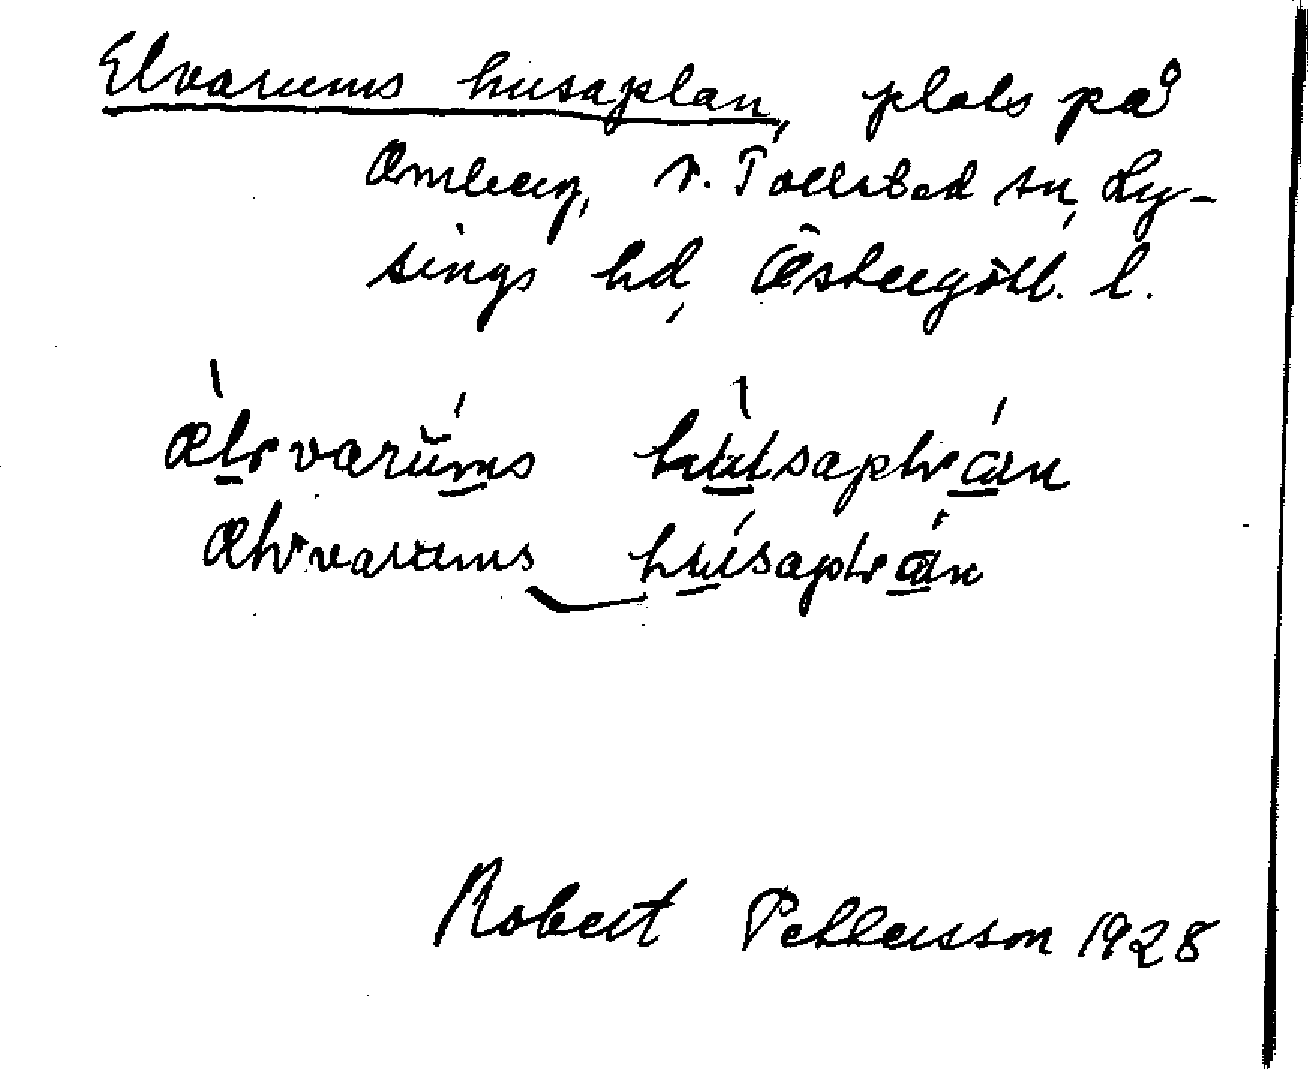 Elvarums husaplan, plats på
Omberg, V. Tollstad sn, Ly-
sings hd, Östergötl. l.
ælvarŭms husaplan
ælvarums husaplan
Robert Pettersson 1928